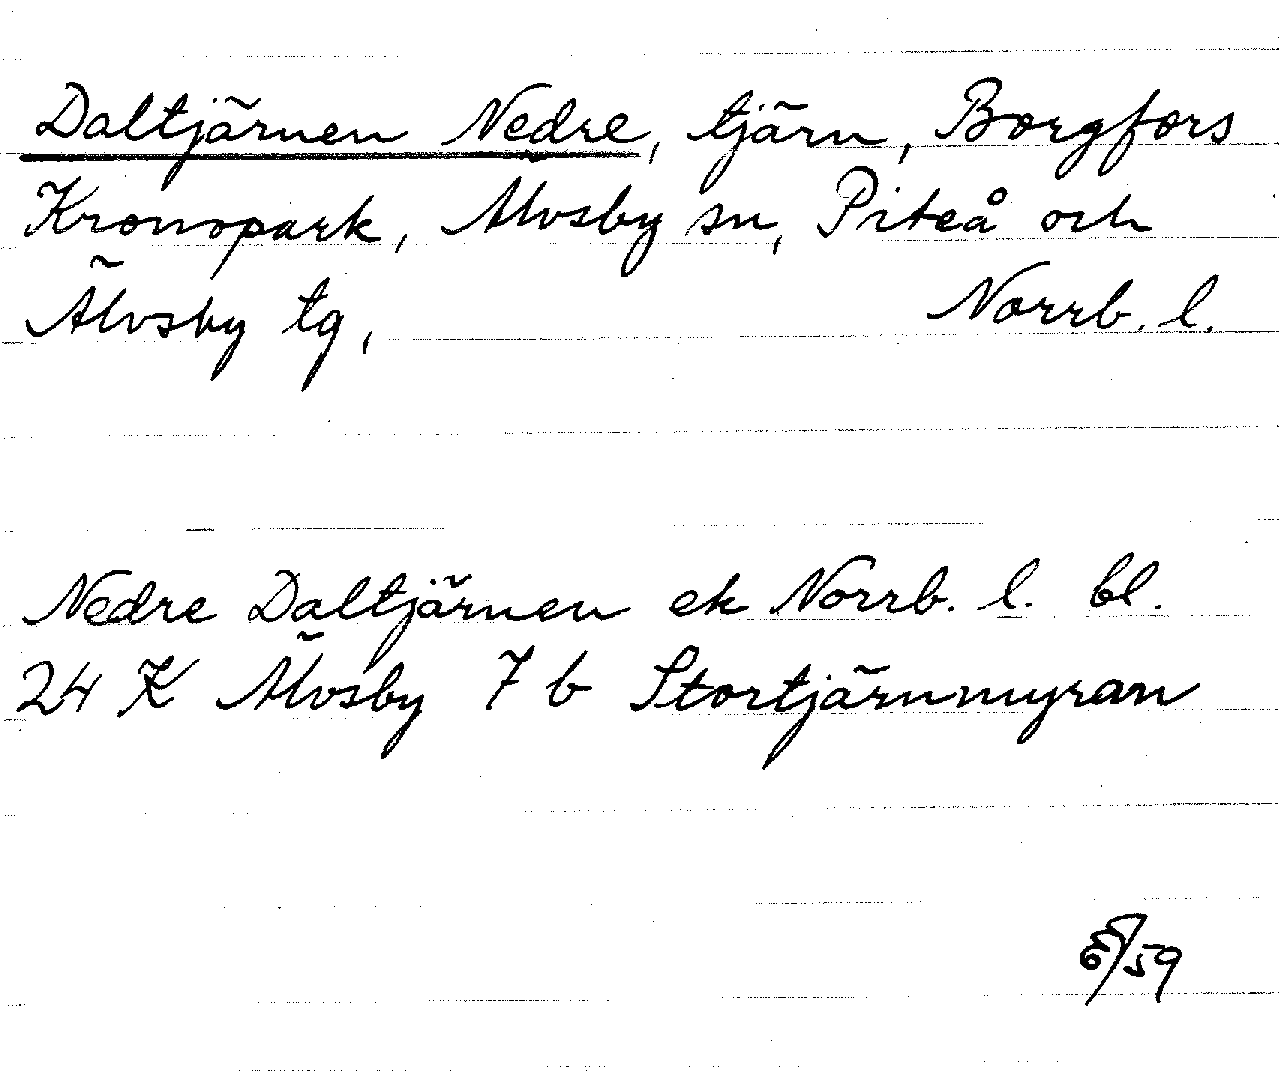 Daltjärnen Nedre, tjärn, Borgfors
Kronopark, Älvsby sn, Piteå och
Älvsby tg, Norrb. l.
Nedre Daltjärnen ek Norrb. l. bl.
24 K Älvsby 7 b Stortjärnmyran
/59